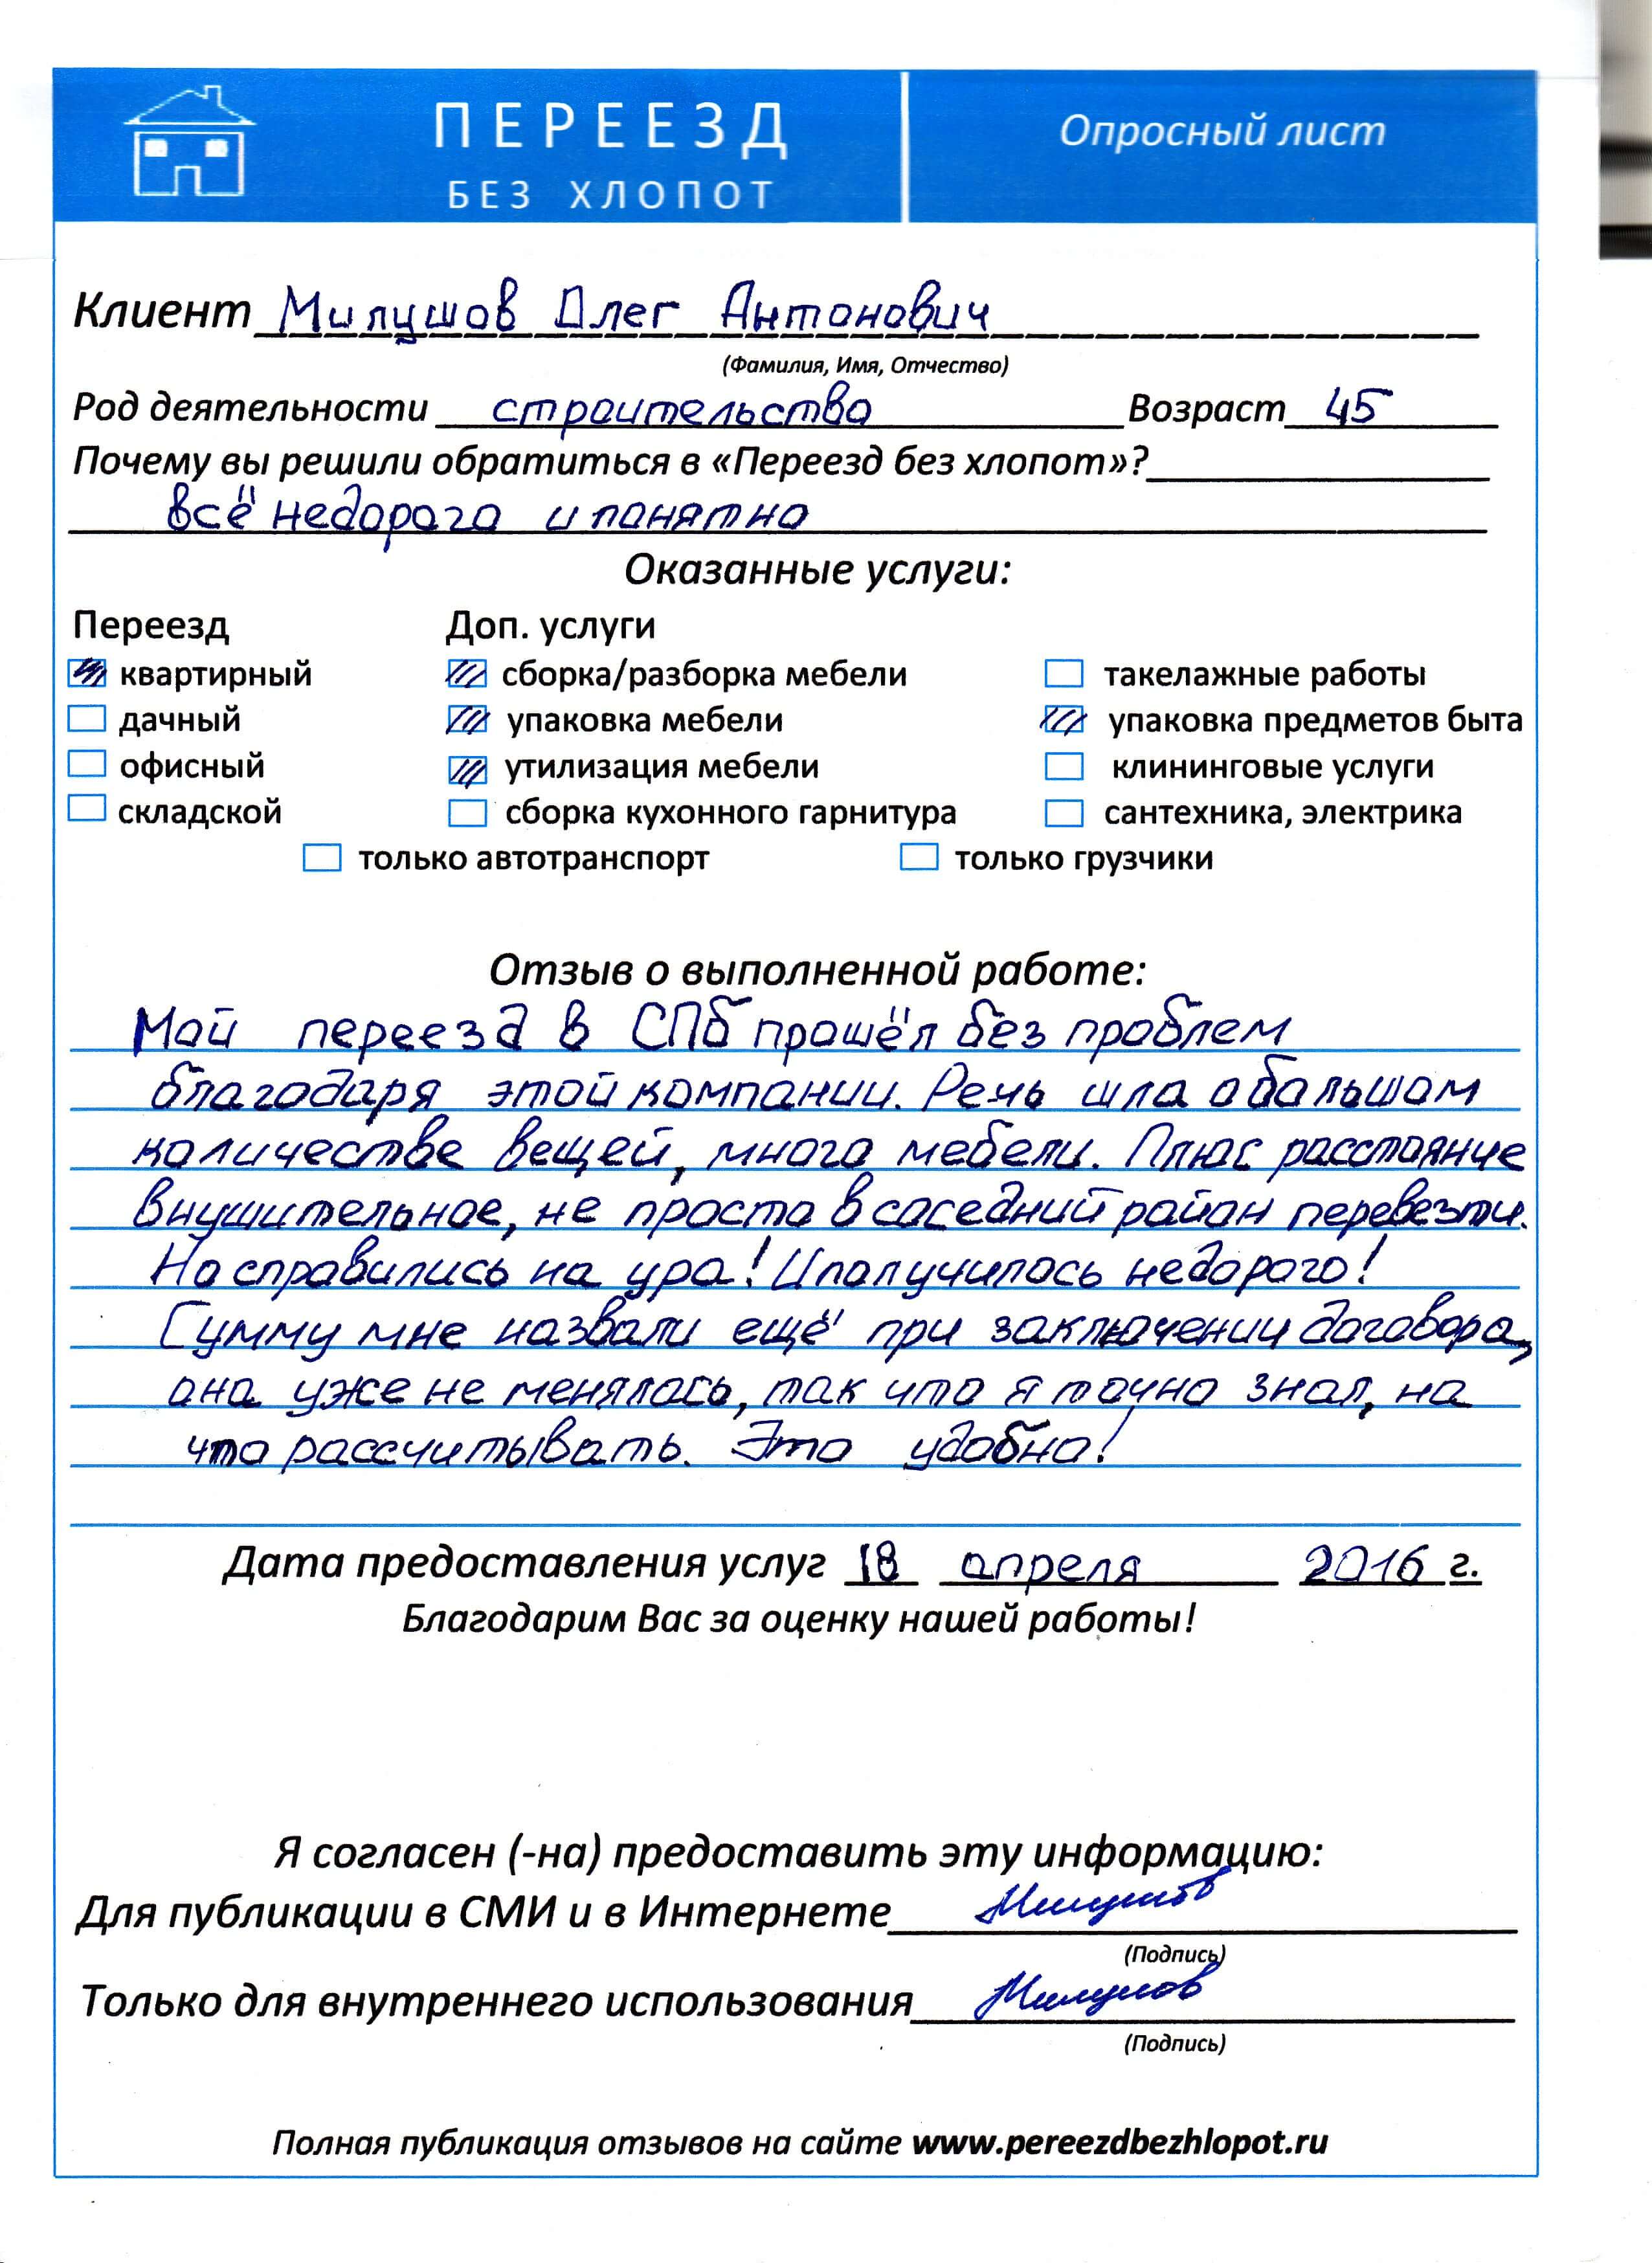 ПЕРЕЕЗД
БЕЗ ХЛОПОТ
Опросный лист
Клиент Милушов Олег Антонович
(Фамилия, Имя, Отчество)
Род деятельности строительство Возраст 45
Почему вы решили обратиться в «Переезд без хлопот»?
всё недорого и понятно
Оказанные услуги:
Переезд Доп. услуги
квартирный сборка/разборка мебели такелажные работы
дачный упаковка мебели упаковка предметов быта
офисный утилизация мебели клининговые услуги
складской сборка кухонного гарнитура сантехника, электрика
только автотранспорт только грузчики
Отзыв о выполненной работе:
Мой переезд в СПб прошёл без проблем
благодаря этой компании. Речь шла о большом
количестве вещей, много мебели. Плюс расстояние
внушительное, не просто в соседний район перевезти.
Но справились на ура! И получилось недорого!
Сумму мне назвали ещё при заключении договора,
она уже не менялась, так что я точно знал, на
что рассчитывать. Это удобно!
Дата предоставления услуг 18 апреля 2016 г.
Благодарим Вас за оценку нашей работы!
Я согласен (-на) предоставить эту информацию:
Для публикации в СМИ и в Интернете Милушов
(Подпись)
Только для внутреннего использования Милушов
(Подпись)
Полная публикация отзывов на сайте www.pereezdbezhlopot.ru